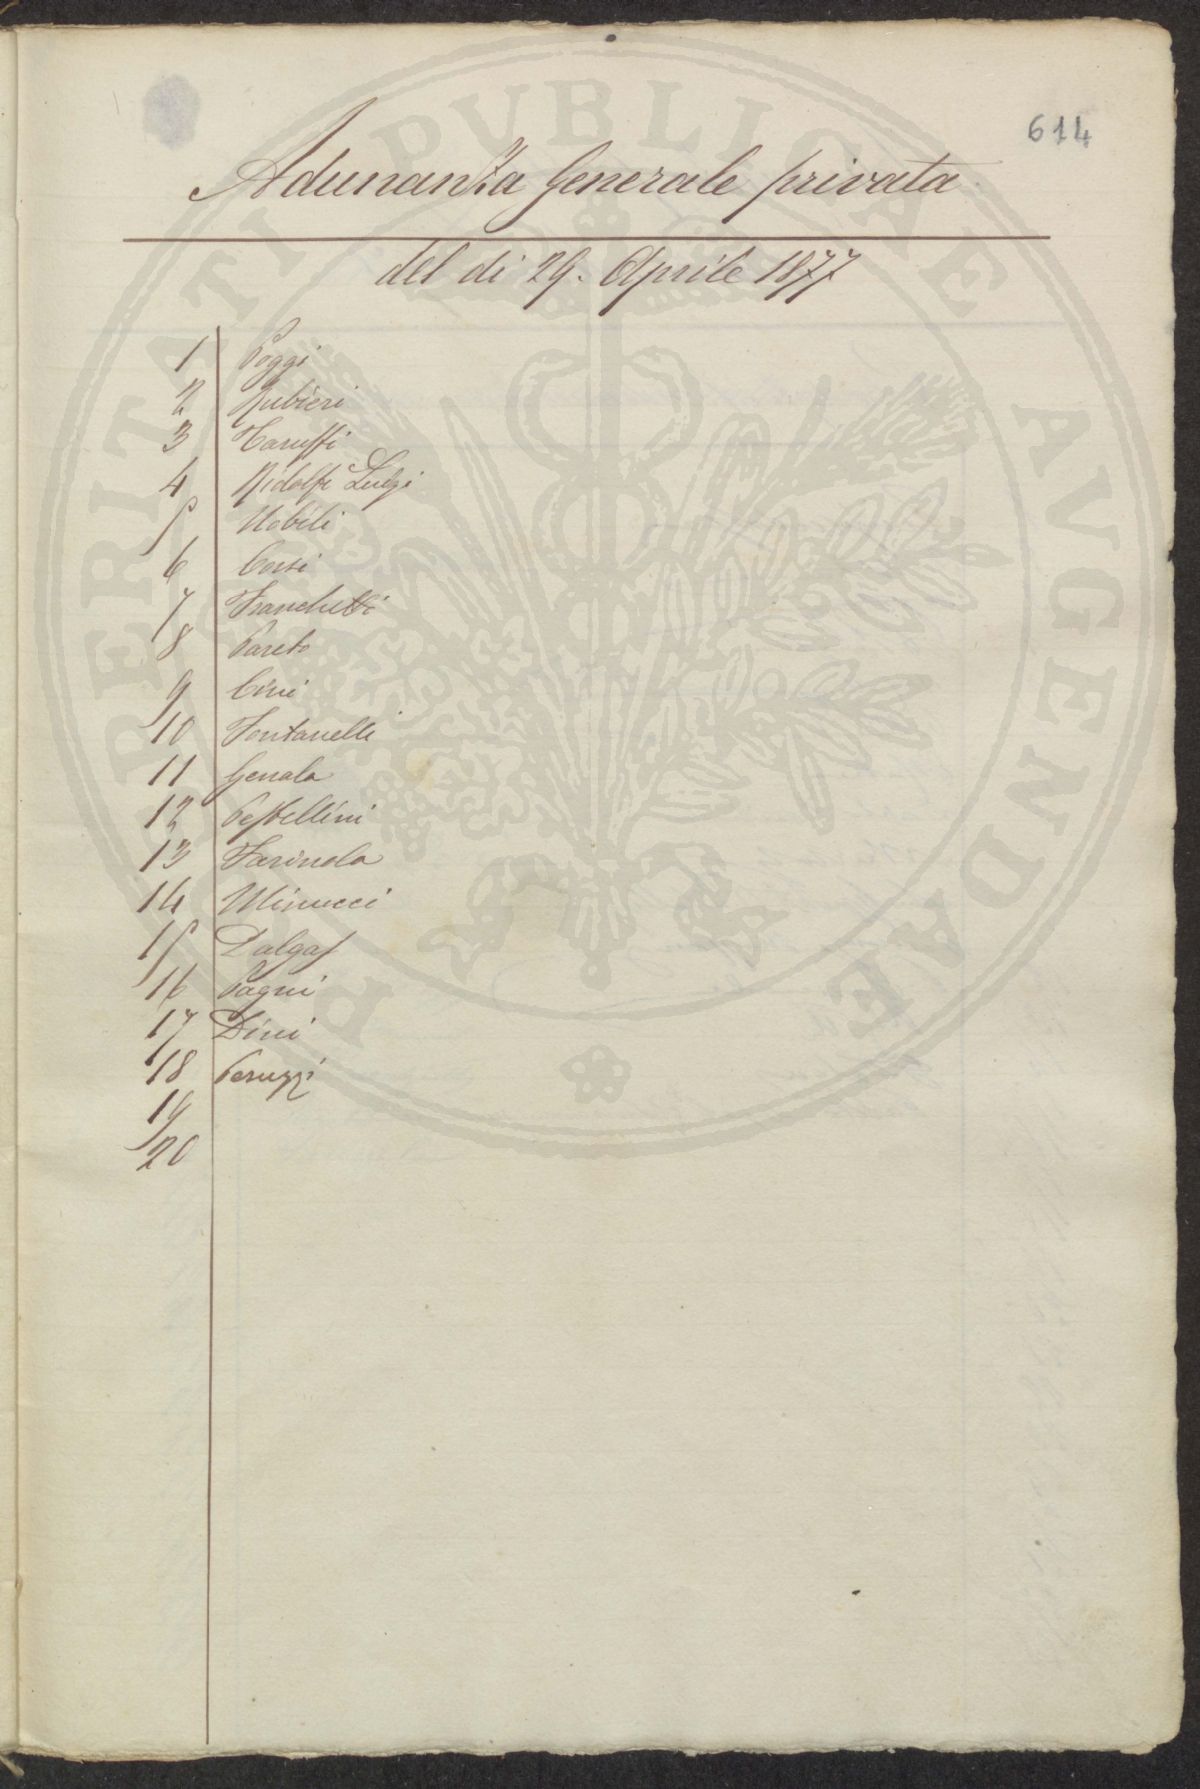 614
Adunanza Generale privata
del dì 29. Aprile 1877
1 Poggi
2 Rubieri
3 Taruffi
4 Ridolfi Luigi
5 Nobili
6 Corsi
7 Franchetti
8 Pareto
9 Cini
10 Fontanelli
11 Genala
12 Pestellini
13 Farinola
14 Minucci
15 Dalgas
16 Pagni
17 Dini
18 Peruzzi
19
20
PROSPERITATI PUBLICAE AVGENDAE